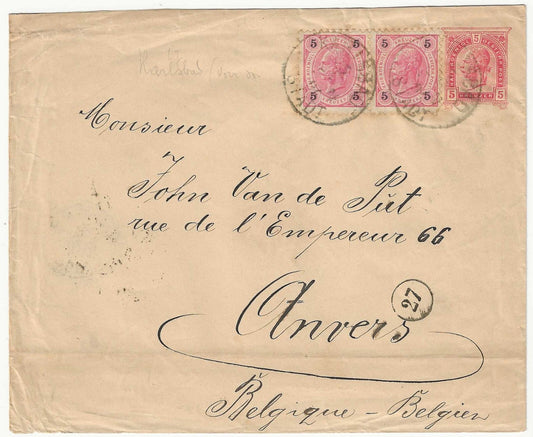 5 5 5 5
5 5
5 5 5 5
Karlsbad
Monsieur
John Van de Put
rue de l'Empereur 66
27
Anvers
Belgique - Belgien